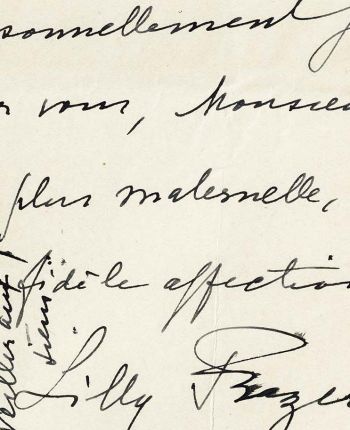 sonnellement
vous, Monsieu
plus maternelle,
fidèle affection
Lilly Frazer